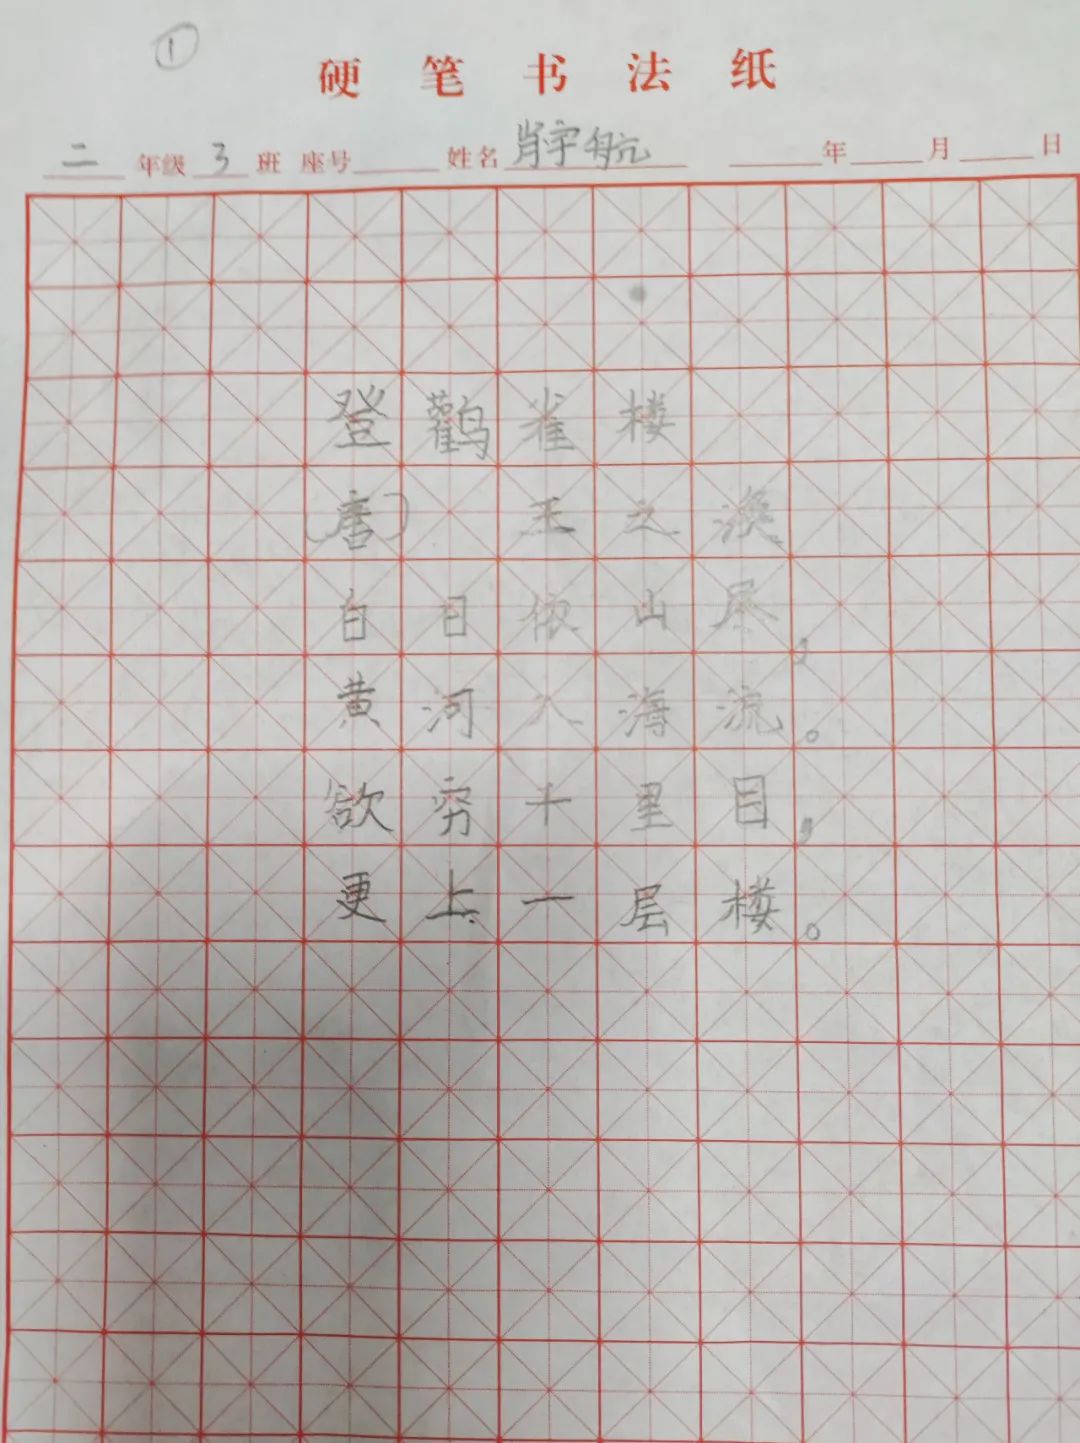 ①
硬笔书法纸
二年级3班 座号 姓名肖宇航 年 月 日
登鹳雀楼
(唐) 王之涣
白日依山尽，
黄河入海流。
欲穷千里目，
更上一层楼。